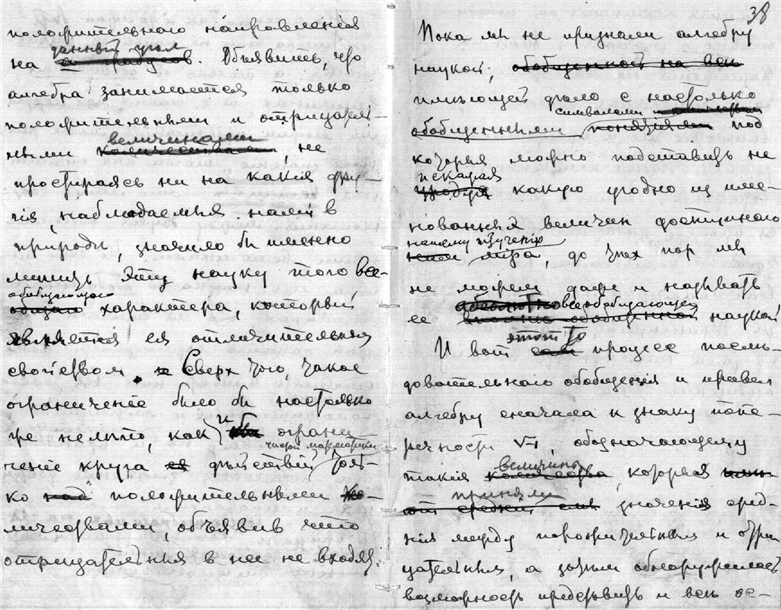 положительнаго направленія
данный уголъ
на . Объявить, что
алгебра занимается только
положительными и отрицатель-
величинами
ными , не
простираясь ни на какія дру-
гія, наблюдаемыя нами в
природе, значило бы именно
лишить эту науку того все-
обобщающаго
характера, который
является ея отличительным
свойством. Сверх того, такое
ограниченіе было бы настолько
же нелепо, как и ограни-
чистой математики
ченіе круга действій толь-
ко положительными ко-
личествами, объявив что
отрицательныя в нее не входят.
38
Пока мы не признали алгебру
наукой,
имеющей дело с настолько
символами
обобщенными под
которыя можно подставить не
искажая
какую угодно из име-
нованных величин доступнаго
нашему изученію
міра, до тех пор мы
не можем даже и называть
всеобобщающей
ее наукой
этот то
И вот процесс после-
довательнаго обобщенія и привел
алгебру сначала к знаку попе-
речности √-1, обозначающему
величины
такія , которыя
приняли
значенія сред-
нія между положительными и отри-
цательными, а затем обнаружилась
возможность представить и весь ос-